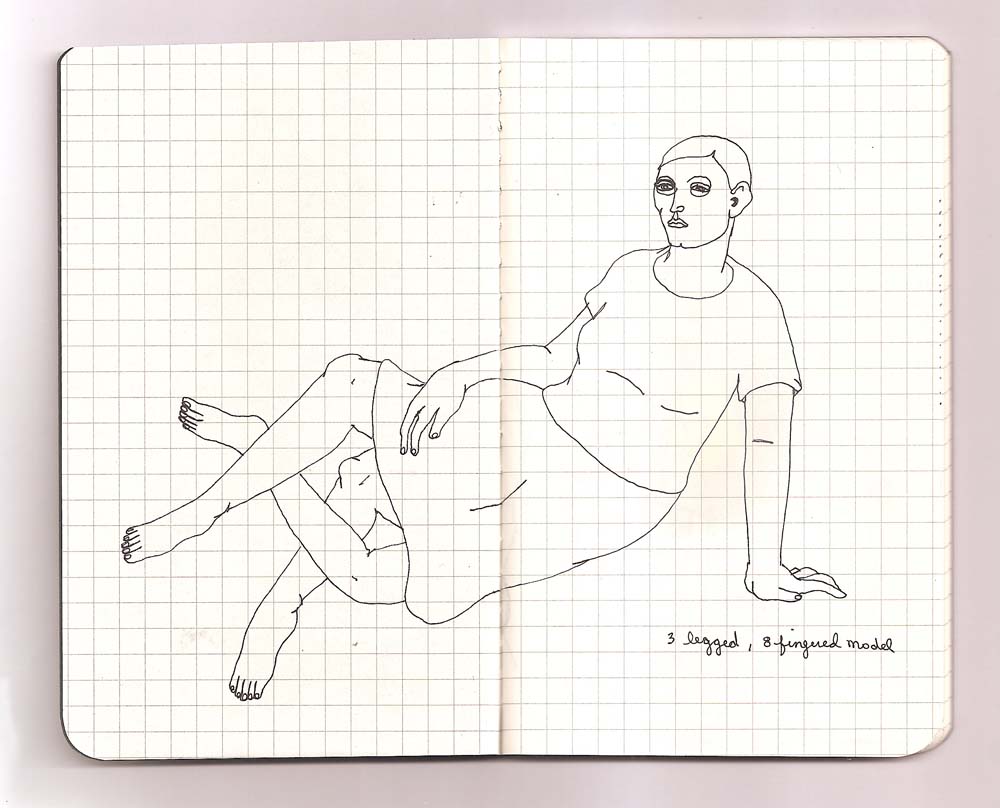 3 legged, 8 fingered model